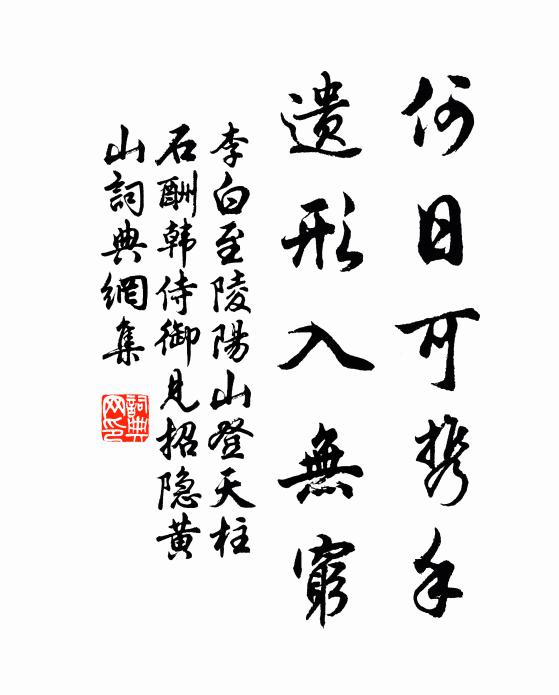 何日可携手
遗形入無窮
李白至陵陽山登天柱
石酬韩侍御見招隐黄
山詞典網集
詞典
网印